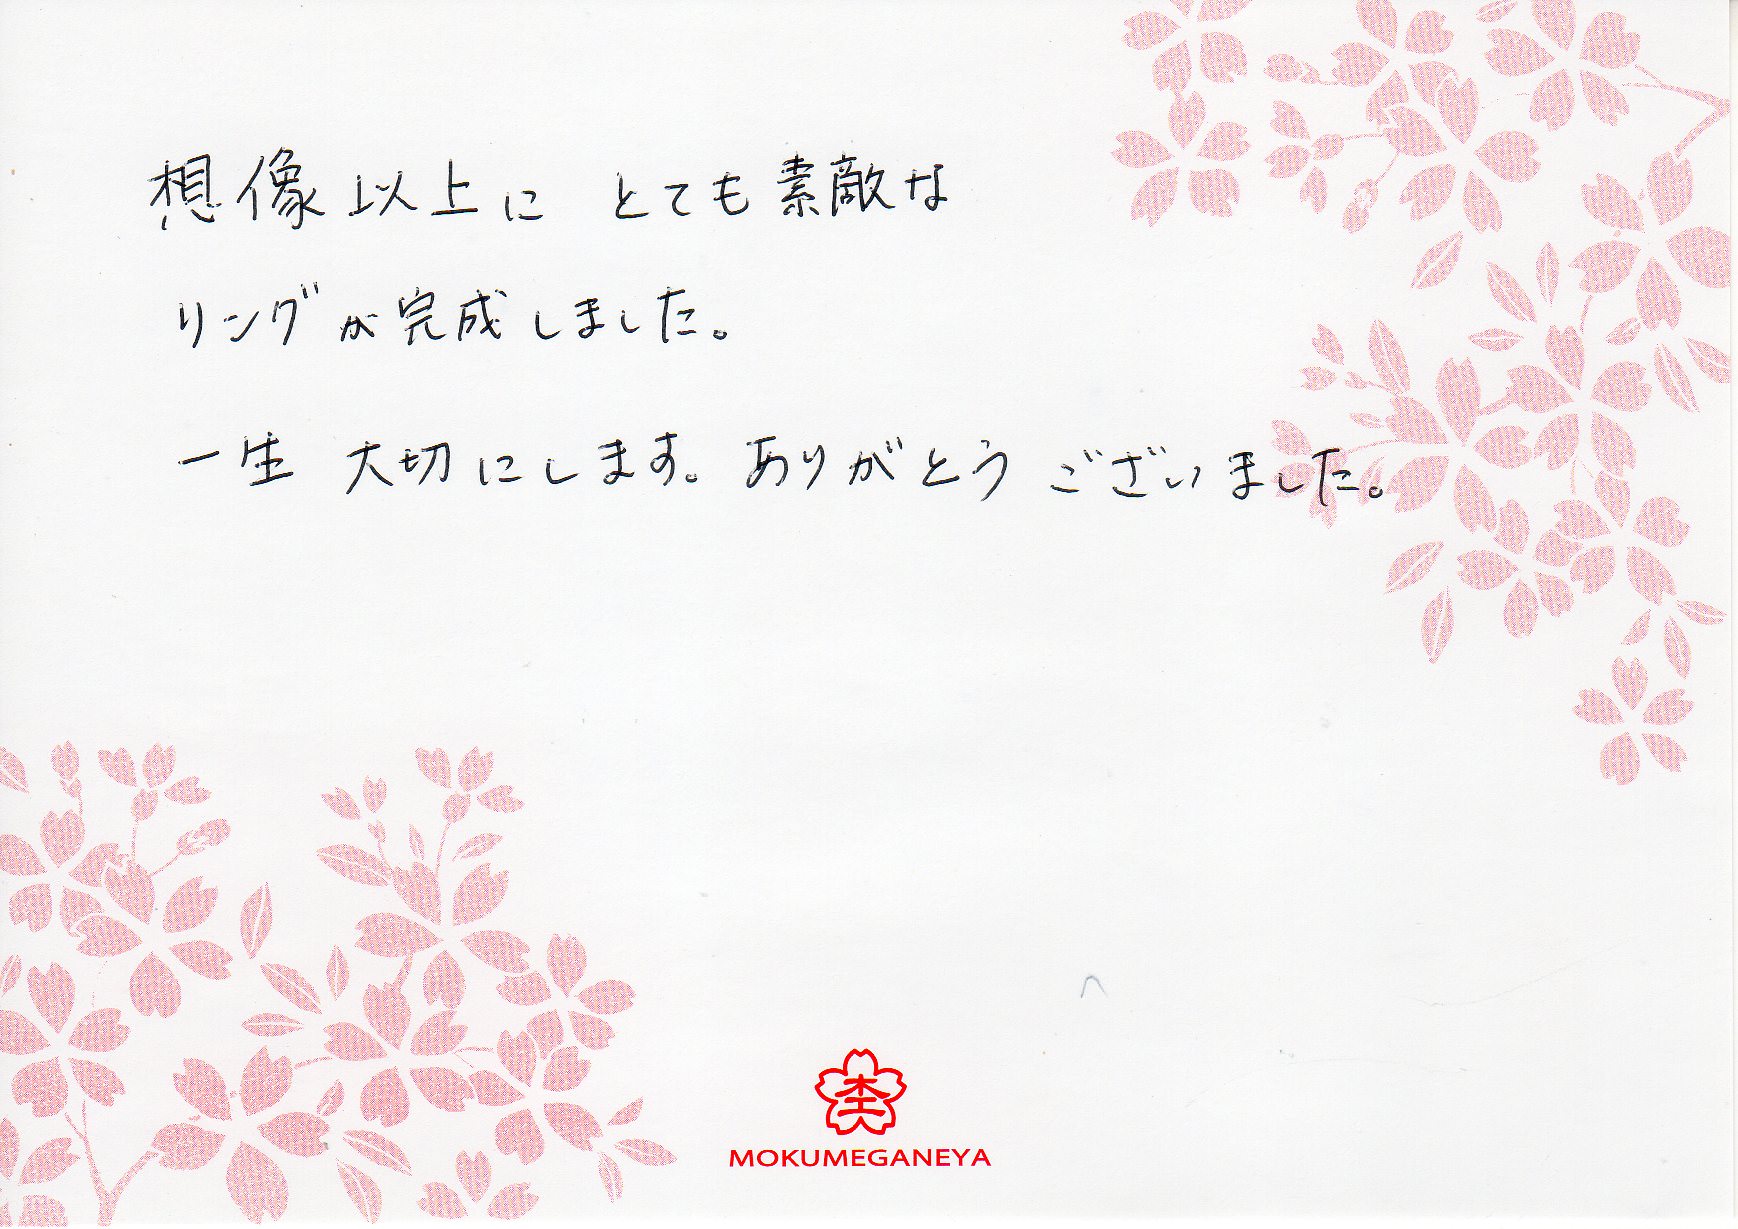 想像以上に とても素敵な
リングが完成しました。
一生 大切にします。ありがとう ございました。
MOKUMEGANEYA